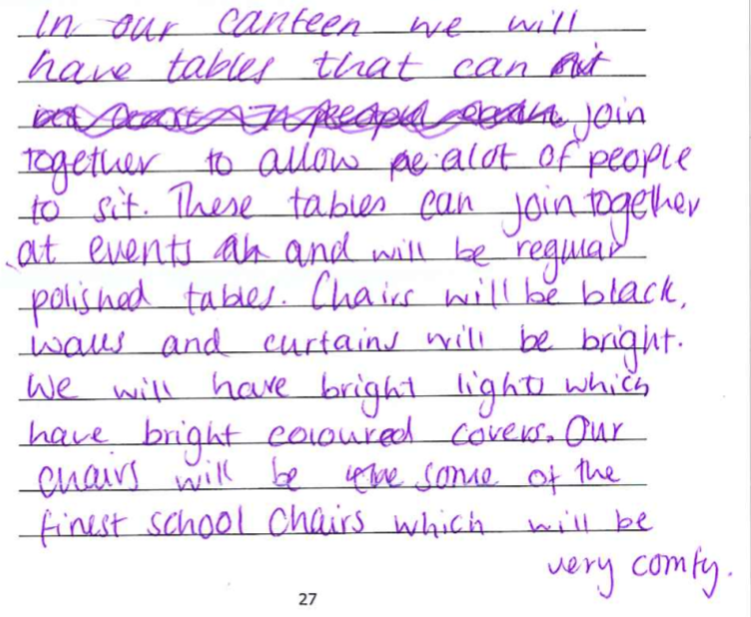 In our canteen we will
have tables that can
join
together to allow alot of people
to sit. These tables can join together
at events and will be regular
polished tables. Chairs will be black,
walls and curtains will be bright.
We will have bright lights which
have bright coloured covers. Our
chairs will be some of the
finest school chairs which will be
very comfy.
27